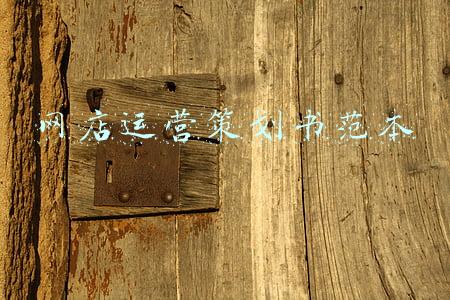 网店运营策划书范本